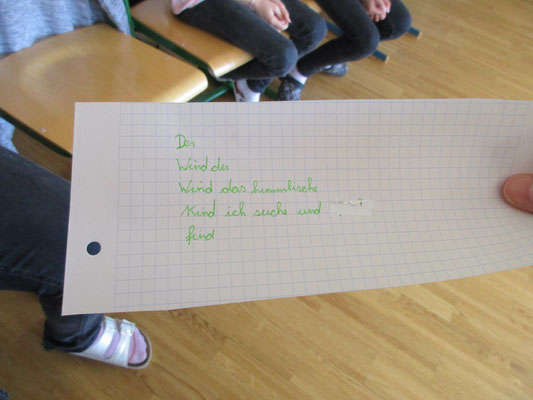 Der
Wind der
Wind das himmlische
Kind ich suche und
find